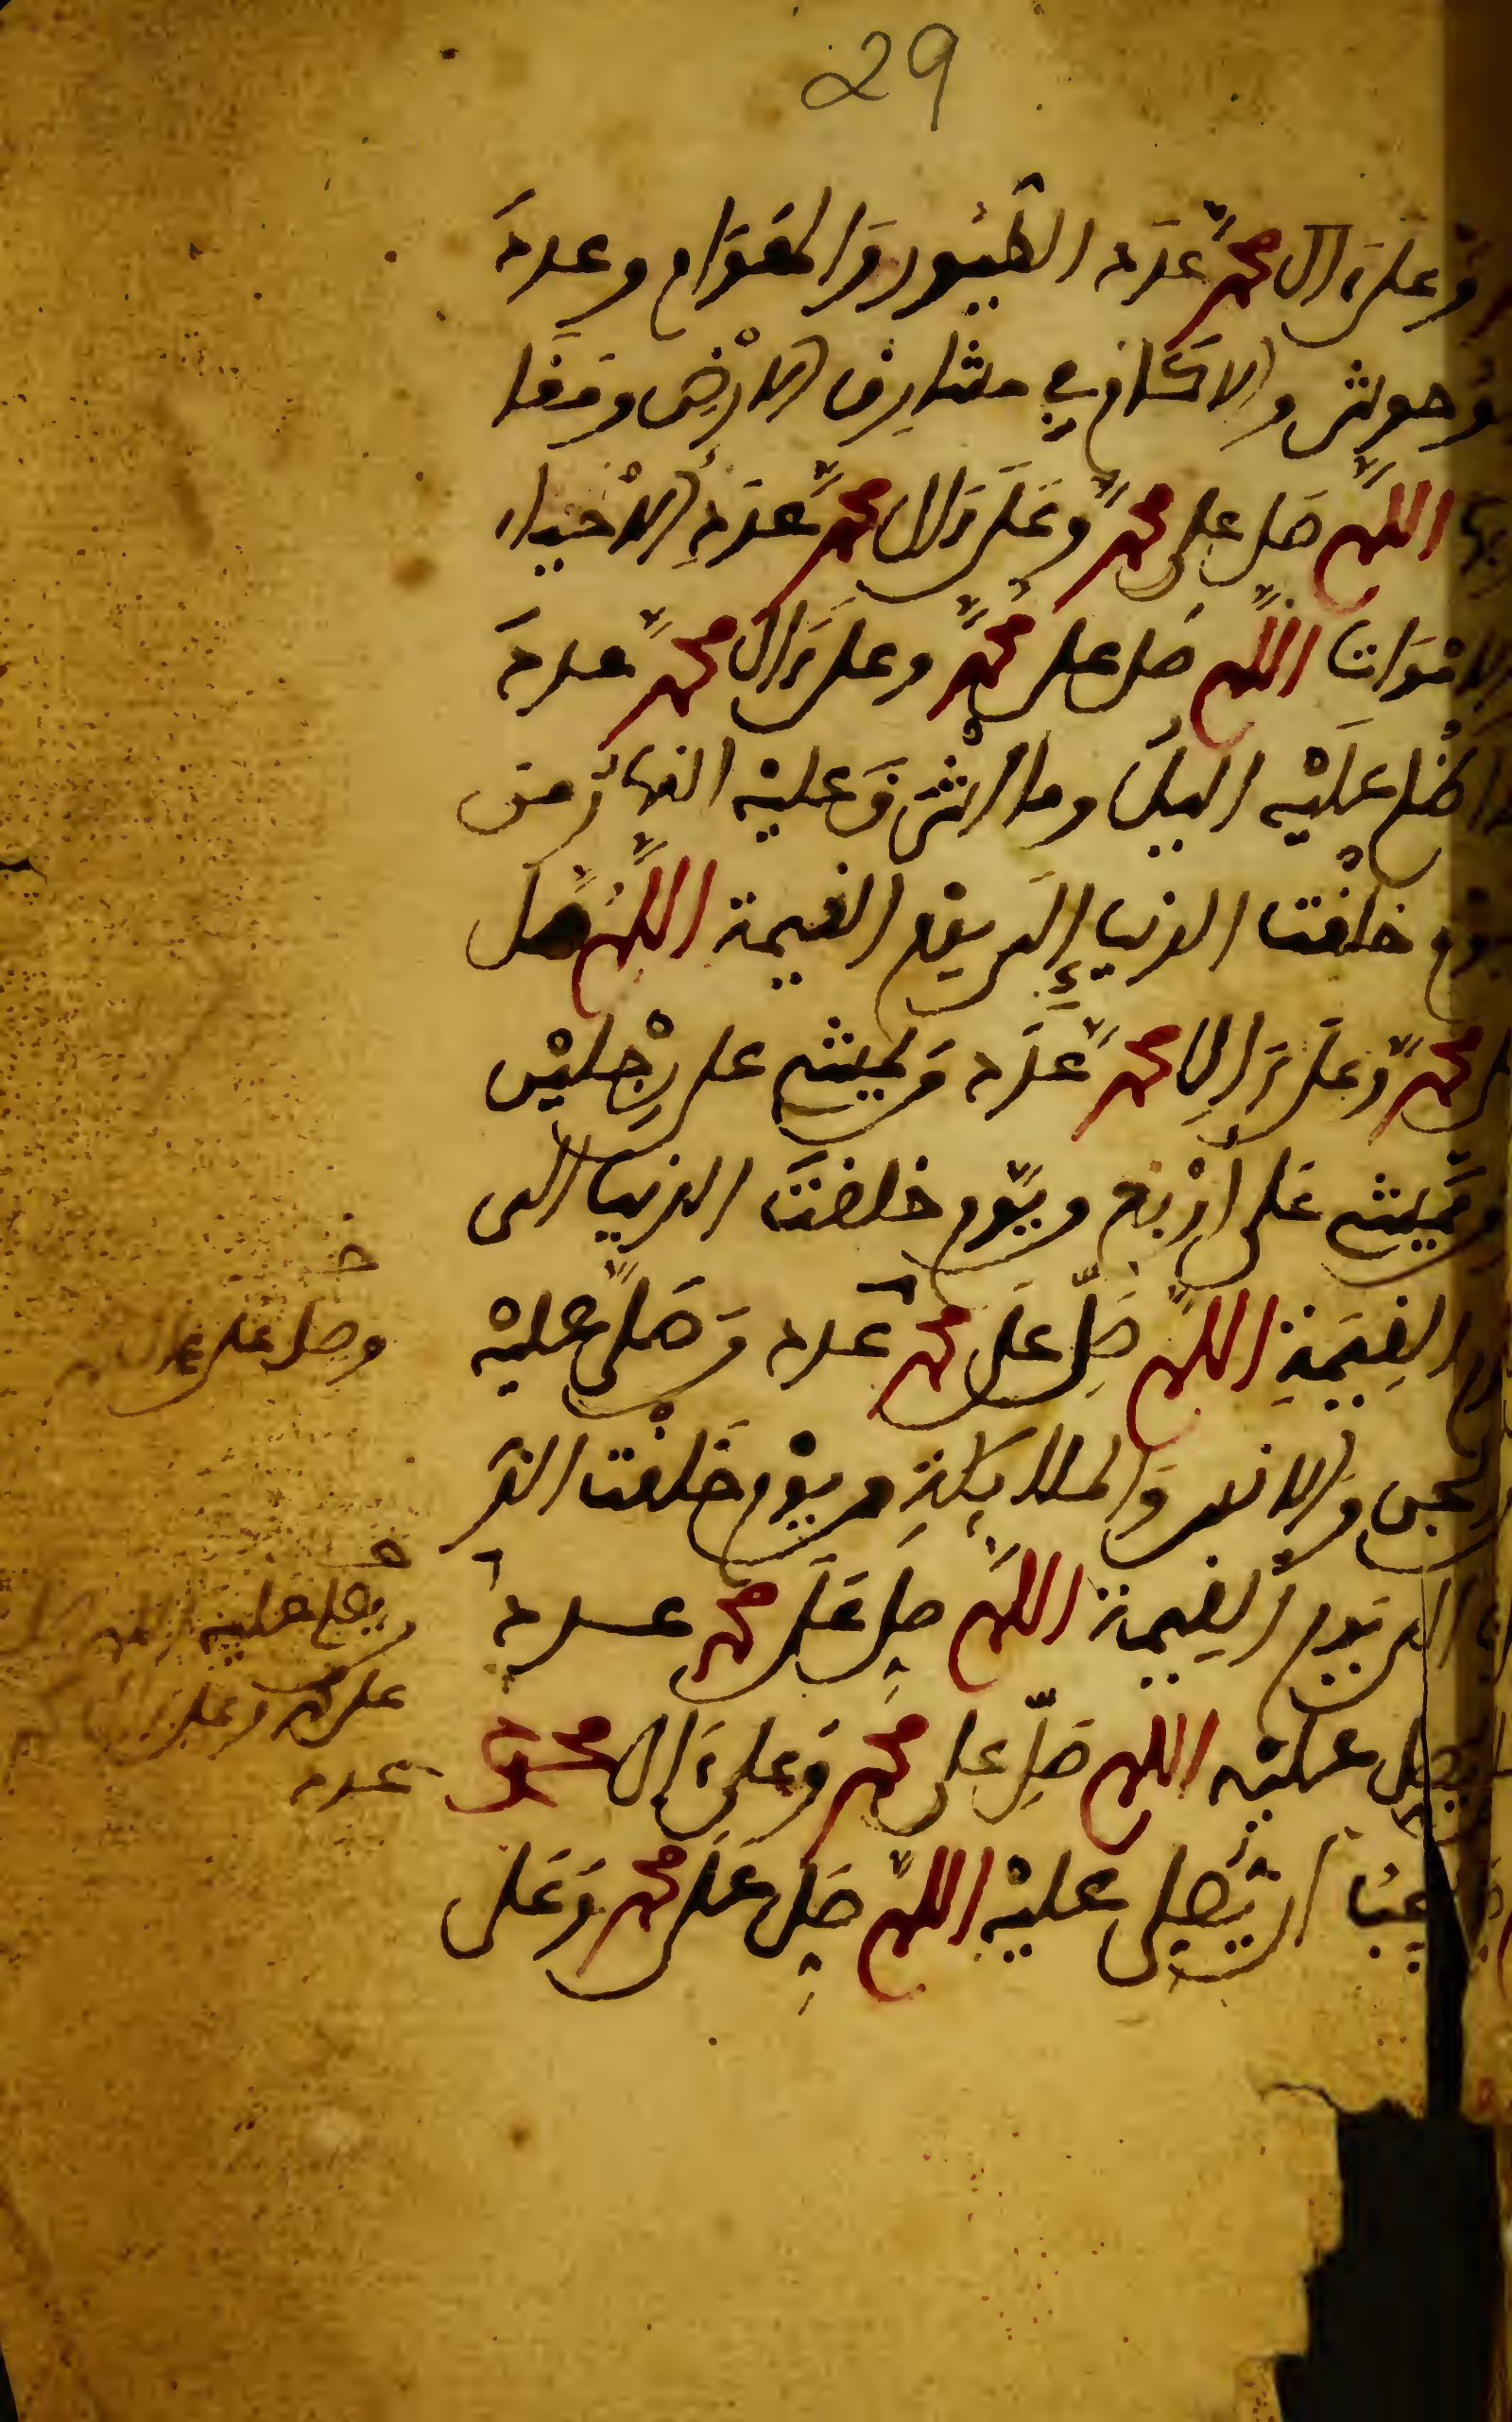 29
وعلى ءال محمد عدد الطيور والهوام وعدد
وحوش والاكام في مشارق الارض ومغا
اللهم صل على محمد وعلى ءال محمد عدد الاحياء
الاموات اللهم صل على محمد وعلى ءال محمد عدد
اظلم عليه اليل وما اشرق عليه النهار من
يوم خلقت الدنيا إلى يوم القيمة اللهم صل
على محمد وعلى ءال محمد عدد من يمشي على رجلين
ومن يمشي على أربع ويوم خلقت الدنيا الى
يوم القيمة اللهم صل على محمد عدد من صلى عليه
الجن والانس والملائكة من يوم خلقت الد
الى يوم القيمة اللهم صل على محمد عدد
يصل عليه اللهم صل على محمد وعلى ءال محمد
يجب ان يصلى عليه اللهم صل على محمد وعلى
وصل على محمد
يصلى عليه
على محمد وعلى
عدد